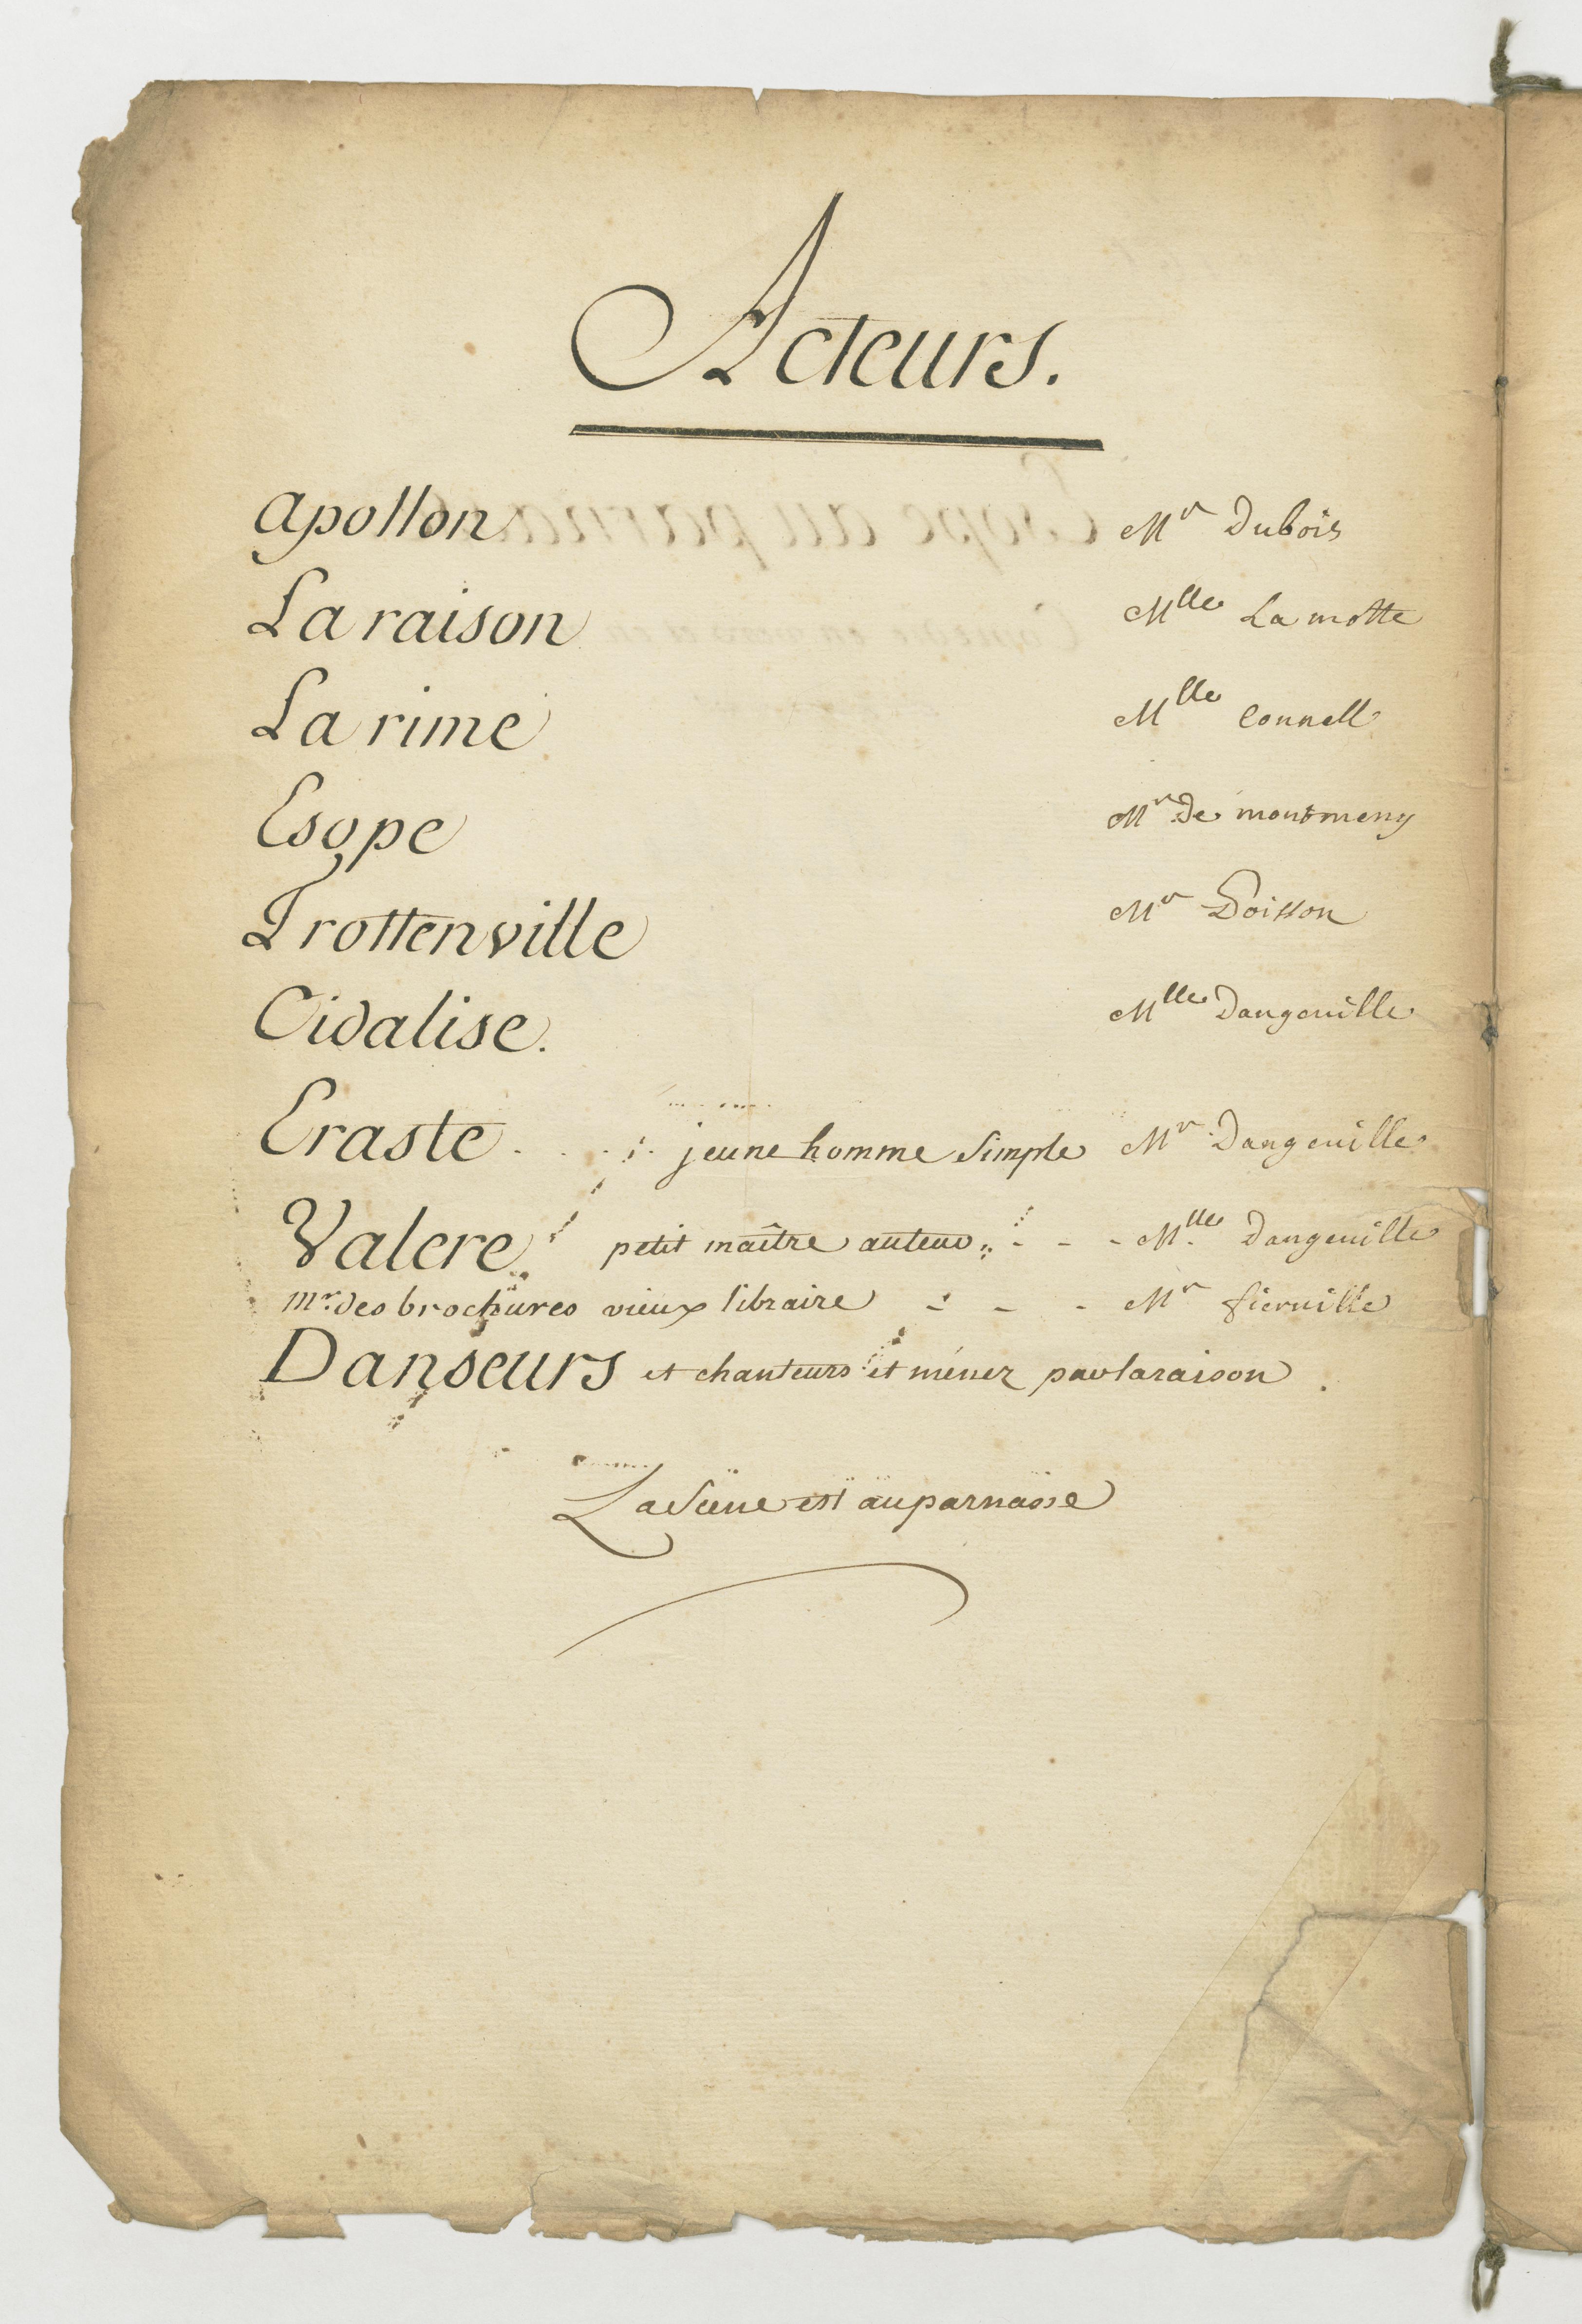 Acteurs.
Apollon Mr Dubois
La raison Mlle La motte
La rime Mlle Connell
Esope Mr De montmeny
Trottenville Mr Poisson
Cidalise. Mlle Dangeuille
Eraste . . . . jeune homme simple Mr Dangeuille
Valere petit maître auteur - - - Mlle Dangeuille
mr. des brochures vieux libraire - - - Mr fieruille
Danseurs et chanteurs et ménez par la raison .
La Scene est au parnasse